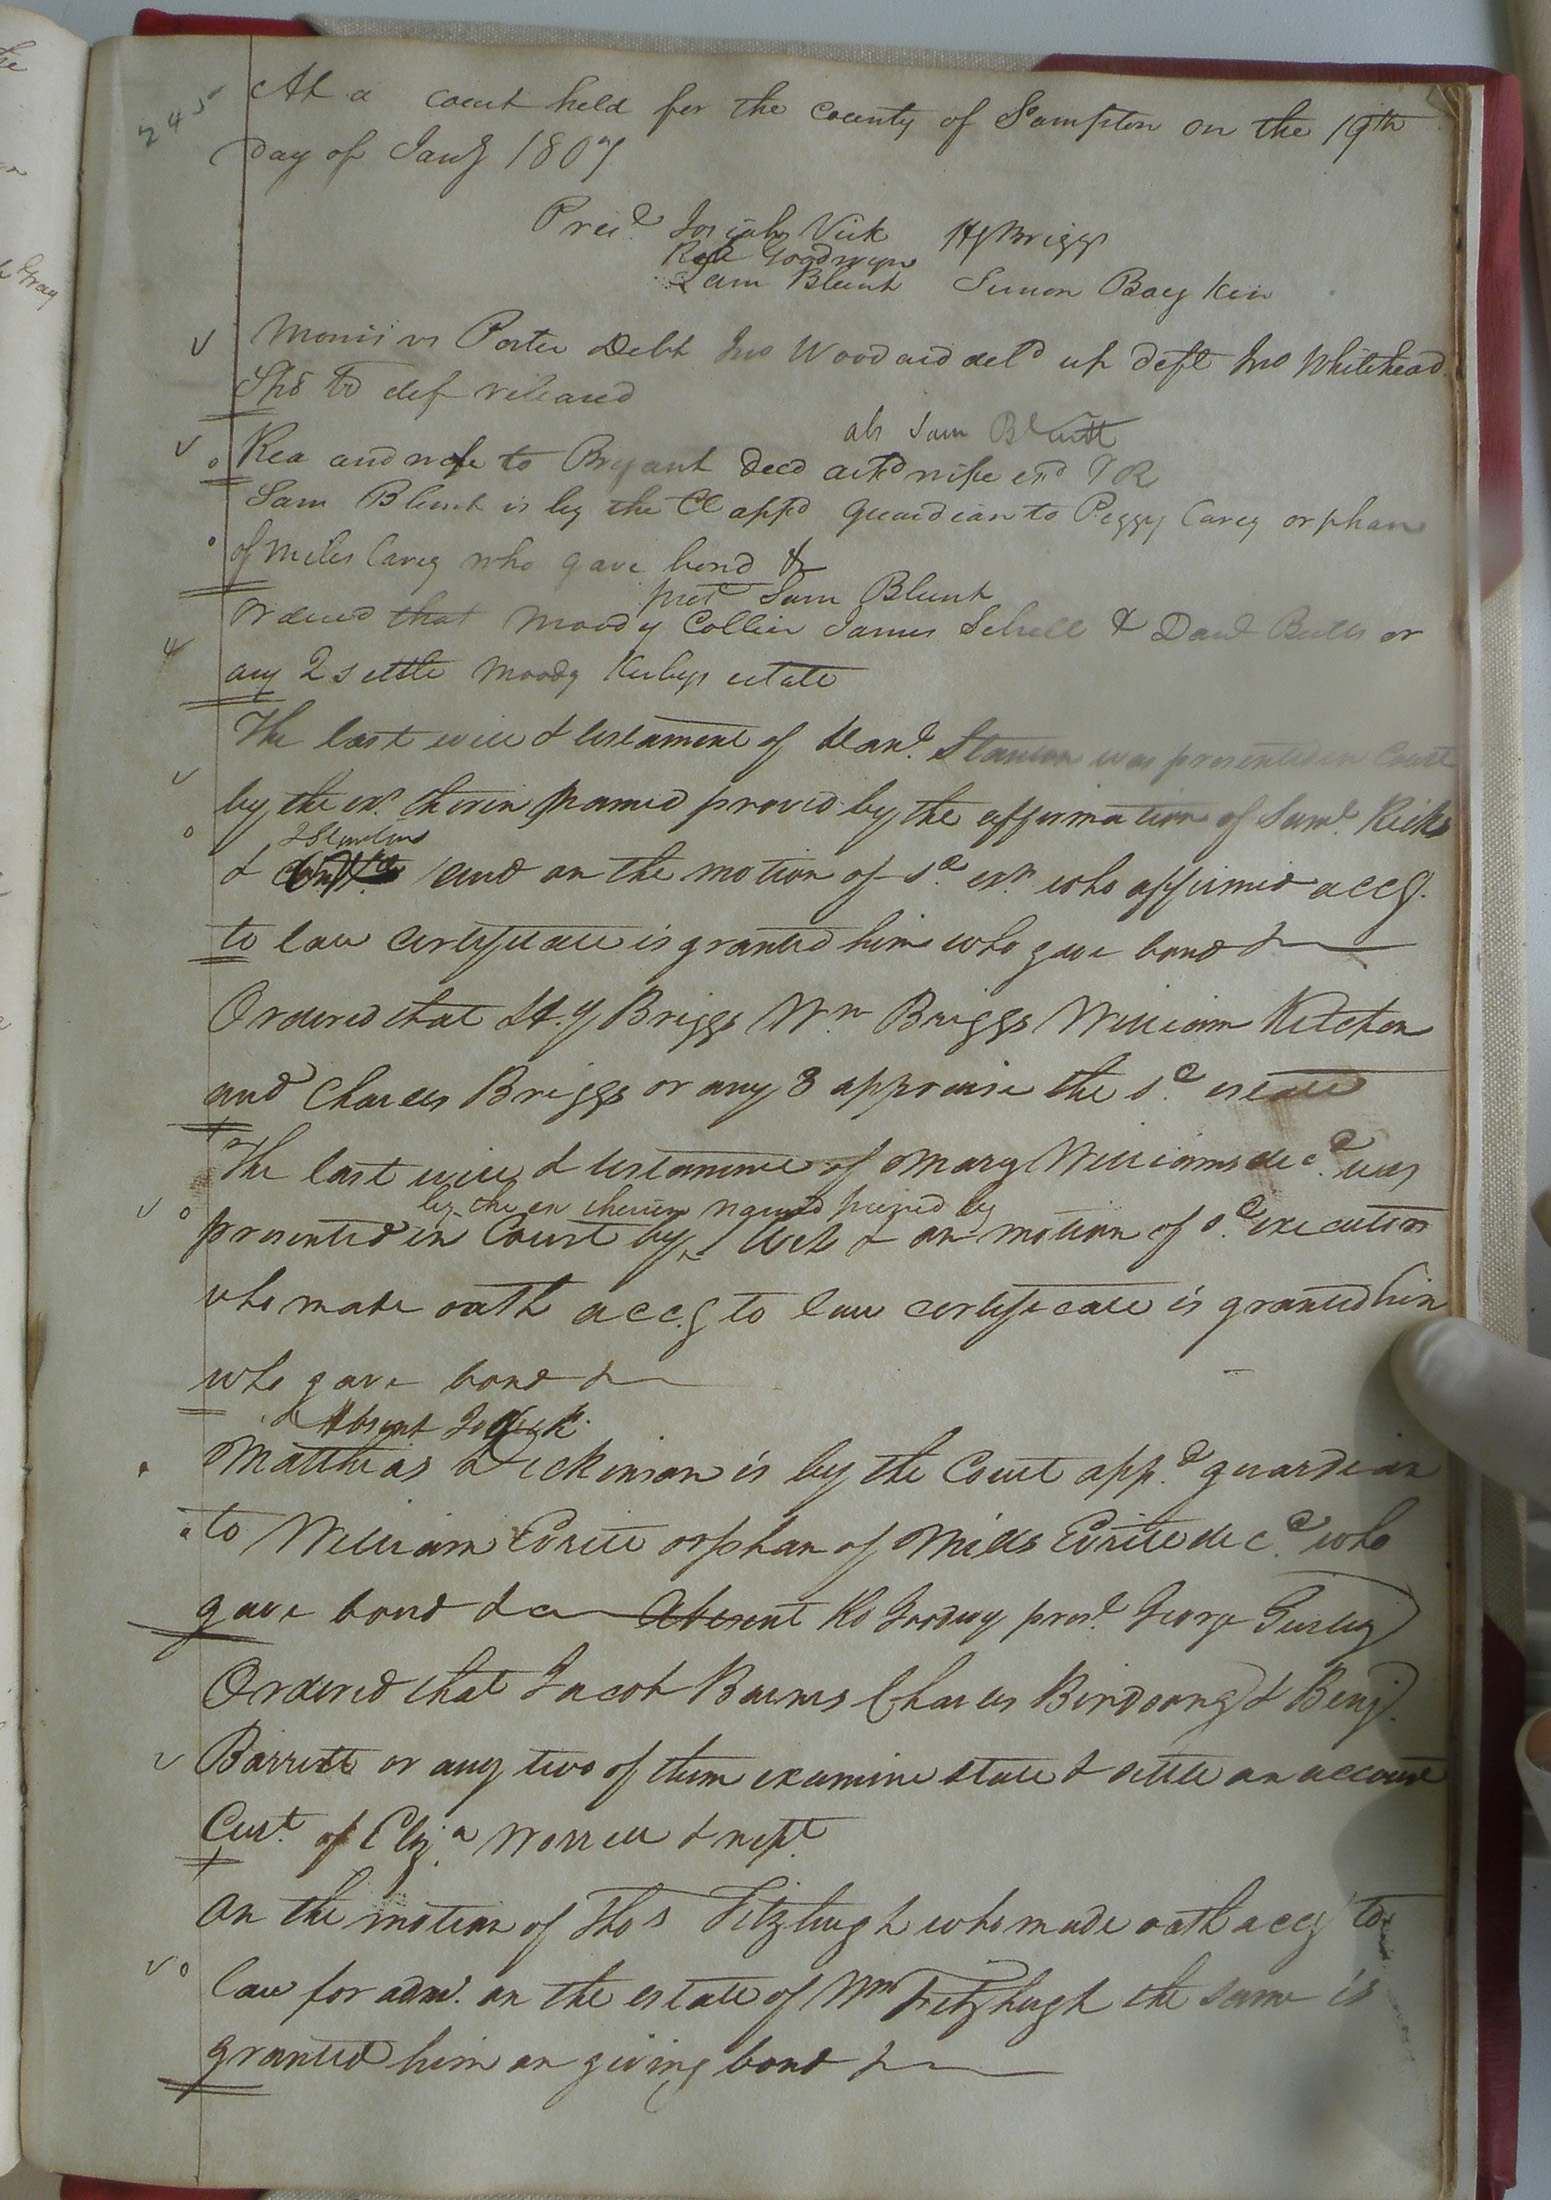 245
At a court held for the county of Sompton on the 19th
Day of Jany 1807
Pres.d Josiah Vick Hy Briggs
Ro Goodwyn
Sam Blunt Simon Boykin
Morris vs Porter Debt Jno Woodard deld up deft Jno Whitehead
def released
abs Sam Blunt
Rea and wife to Bryant Deed ackd wife exd & R
Sam Blunt is by the Ct appd guardian to Peggy Carey orphan
of Miles Carey who gave bond &
prest Sam Blunt
Ordered that Moody Collier James Sebrell & Danl Butts or
any 2 settle Moody Kirbys estate
The last will & testament of Stanton was presented in Court
by the exr. therein named proved by the affirmation of Saml. Ricks
& Stanton
& and on the motion of sd. exr. who affirmed accg.
to law certificate is granted him who gave bond &
Ordered that Hy Briggs Wm Briggs William Kitchen
and Charles Briggs or any 3 appraise the sd. estate
The last will & testament of Mary Williams decd. was
by the ex therein named proved by
presented in Court by & on motion of sd. executor
who made oath accg to law certificate is granted him
who gave bond &
Absent Jo Vick
Matthias Dickinson is by the Court appd. guardian
to William orphan of Mills decd. who
gave bond & Absent Ro Goodwy prest. George Gurley
Ordered that Jacob Barnes Charles Birdsong & Benj.
Barrett or any two of them examine state & settle an account
Curt. of Eliza. Worrell & rept.
On the motion of Thos Fitzhugh who made oath accg to
law for adm. on the estate of Wm Fitzhugh the same is
granted him on giving bond &
Gray